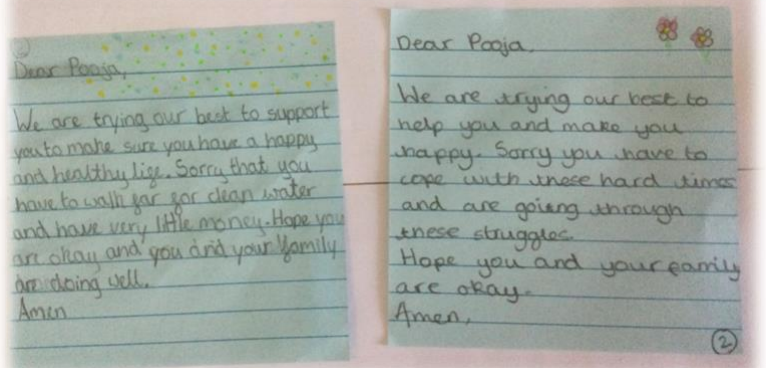 2
Dear Pooja,
We are trying our best to support
you to make sure you have a happy
and healthy life. Sorry that you
have to walk far for clean water
and have very little money. Hope you
are okay and you and your family
are doing well.
Amen
Dear Pooja,
We are trying our best to
help you and make you
happy. Sorry you have to
cope with these hard times
and are going through
these struggles.
Hope you and your family
are okay.
Amen,
2